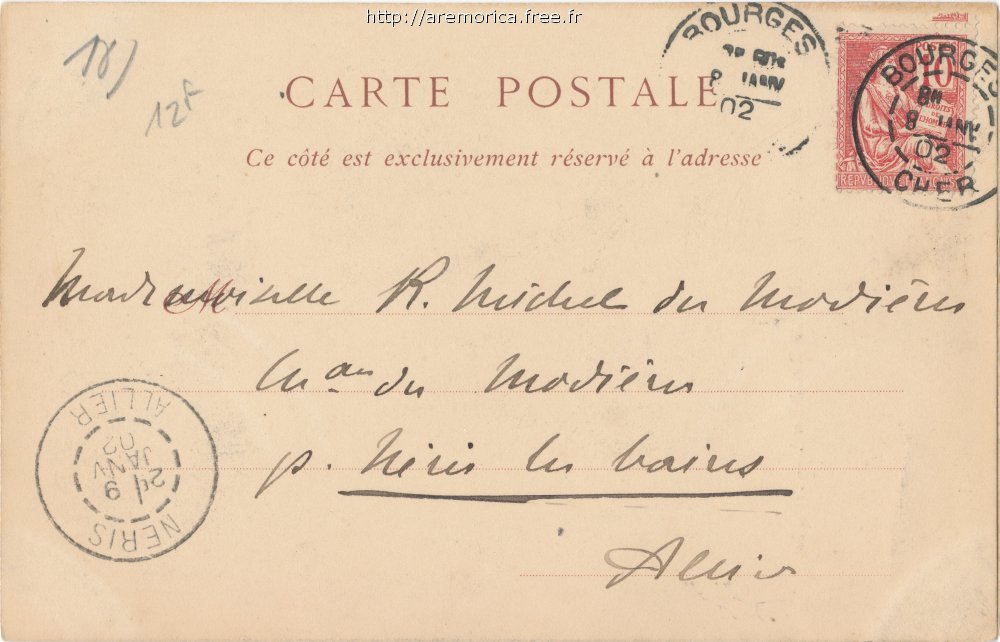 http://aremorica.free.fr
187
12F
CARTE POSTALE
Ce côté est exclusivement réservé à l'adresse
BOURGES
8 JANV
02
10
DROITS DE L'HOMME
BOURGES
8 JANV
02
CHER
M
Mademoiselle R. Michel du Modières
du Modières
p. Néris les bains
Allier
NERIS
9
JANV
02
ALLIER